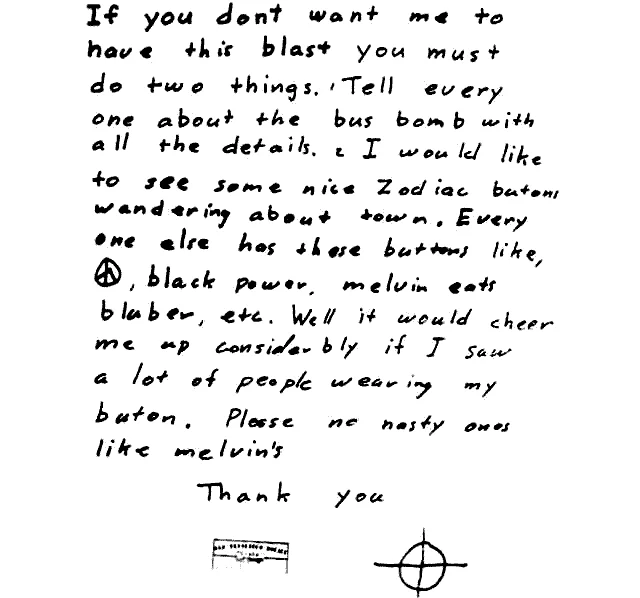 If you dont want me to
have this blast you must
do two things. 1 Tell every
one about the bus bomb with
all the details. 2 I would like
to see some nice Zodiac butons
wandering about town. Every
one else has these buttons like,
☮, black power, melvin eats
bluber, etc. Well it would cheer
me up considerbly if I saw
a lot of people wearing my
buton. Please no nasty ones
like melvin's
Thank you
SAN FRANCISCO